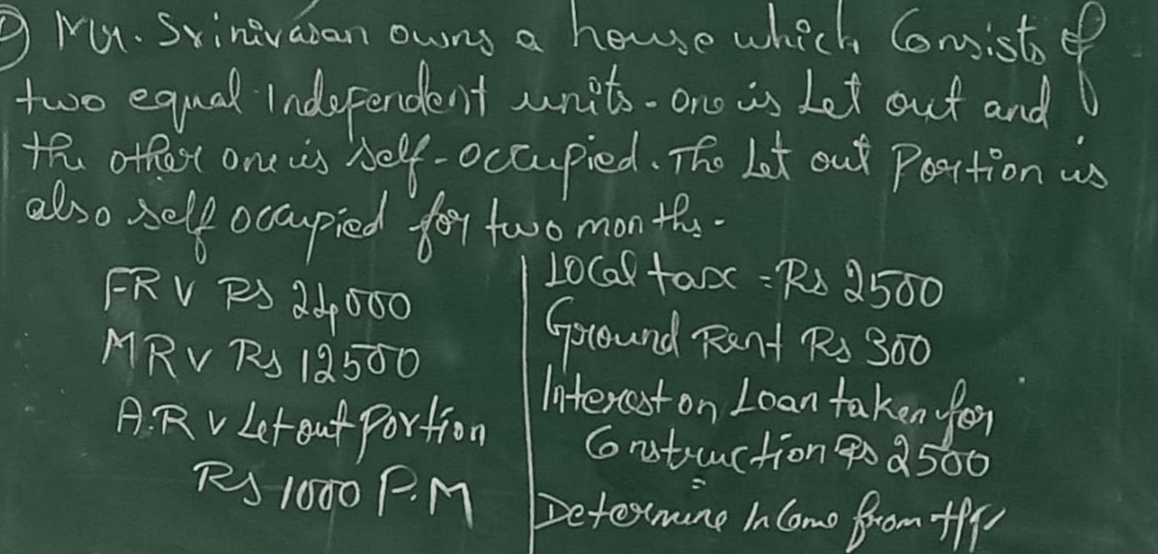 Mr. Srinivasan owns a house which Consists of
two equal Independent units - one is Let out and
the other one is self-occupied. The Let out Portion is
also self occupied for two months -
FRV Rs 24000
MRV Rs 12500
A.R.V Let out Portion
Rs 1000 P.M
Local tax = Rs 2500
Ground Rent Rs 300
Interest on Loan taken for
Construction Rs 2500
Determine Income from